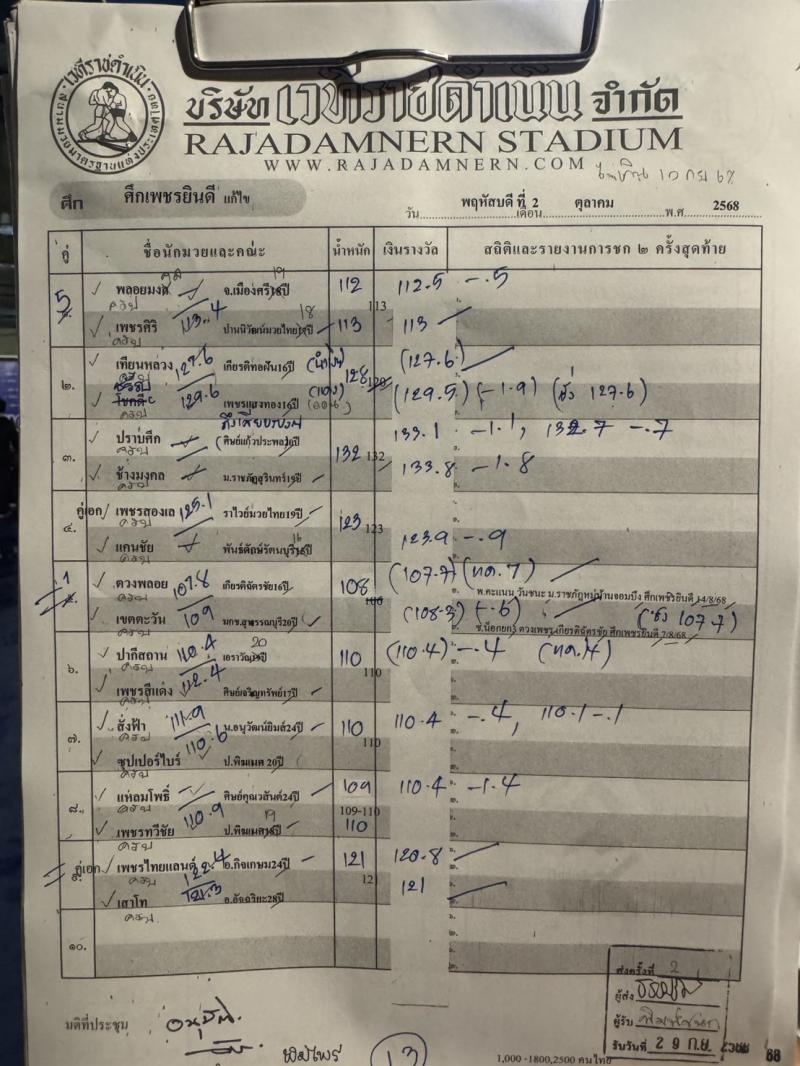 เวทีราชดำเนิน
บริษัท เวทีราชดำเนิน จำกัด
RAJADAMNERN STADIUM
WWW.RAJADAMNERN.COM
ศึก ศึกเพชรยินดี แก้ไข
วัน พฤหัสบดี ที่ 2 เดือน ตุลาคม พ.ศ. 2568
คู่ ชื่อนักมวยและคณะ น้ำหนัก เงินรางวัล สถิติและรายงานการชก ๒ ครั้งสุดท้าย
5 พลอยมงคล จ.เมืองศรี 19 ปี 112 112.5 -.5
113
เพชรศิริ 113.4 ปานนิวัฒน์มวยไทย 18 113 113
๒. เทียนหลวง 127.6 เกียรติทอฝัน16ปี 128 (127.6)
129.6 เพชรแสงทอง16ปี (แดง) (129.5) (-1.9) (ชั่ง 127.6)
๓. ปราบศึก (ศิษย์แก้วประพล) 133.1 -1.1, 132.7 -.7
132 132
ช้างมงคล ม.ราชภัฏสุรินทร์19ปี 133.8 -1.8
คู่เอก เพชรสองเล 125.1 ราไวย์มวยไทย19ปี 123
๔. 123
แคนชัย พันธ์ศักษ์รัตนบุรี 16 ปี 123.9 -.9
1 ดวงพลอย 107.8 เกียรติฉัตรชัย16ปี 108 (107.7) (ทด.7)
พ.คะแนน วันชนะ ม.ราชภัฏหมู่บ้านจอมบึง ศึกเพชรยินดี 14/8/68
เขตตะวัน 109 มกช.สุพรรณบุรี20ปี (108.3) (-.6) (ชั่ง 107.7)
ช.น็อกยก ดวงเพชร เกียรติฉัตรชัย ศึกเพชรยินดี 7/8/68
๖. ปากีสถาน 110.4 เอราวัณ 20 110 (110.4) -.4
110
เพชรสีแดง 112.4 ศิษย์เจริญทรัพย์17ปี
๗. สั่งฟ้า 111.9 น.อนุวัฒน์ยิมส์24ปี 110 110.4 -.4, 110.1 -.1
110
ซุปเปอร์ไบร์ 110.6 ป.พิฆเนศ 20ปี
๘. แหลมโพธิ์ ศิษย์คุณวสันต์24ปี 109 110.4 -1.4
109-110
เพชรทวีชัย 110.9 ป.พิฆเนศ 19 110
คู่เอก เพชรไทยแลนด์ 122.4 อ.กิจเกษม24ปี 121 120.8
121
เสาโท 121.3 อ.อัจฉริยะ28ปี 121
๑๐.
มติที่ประชุม อนุมัติ
13
ส่งครั้งที่ 2
ผู้ส่ง
ผู้รับ
รับวันที่ 29 ก.ย. 2568
1,000 -1800,2500 คนไทย